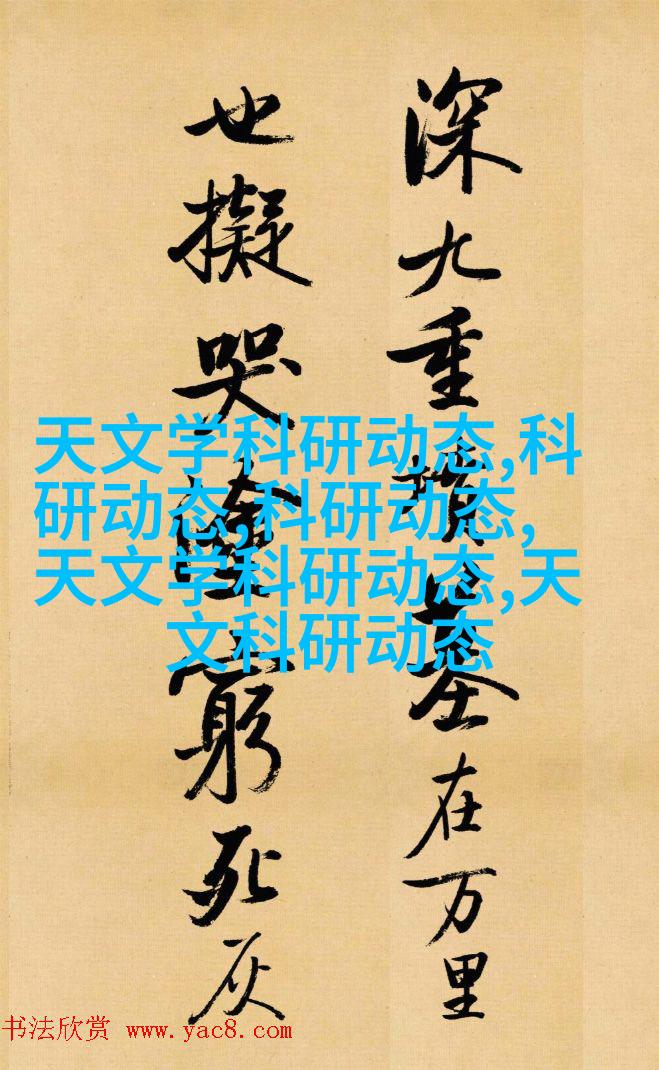 深九重墳墓在万里
也擬哭塗窮死灰
天文学科研动态,科
研动态,科研动态,
天文学科研动态,天
文科研动态
书法欣赏 www.yac8.com